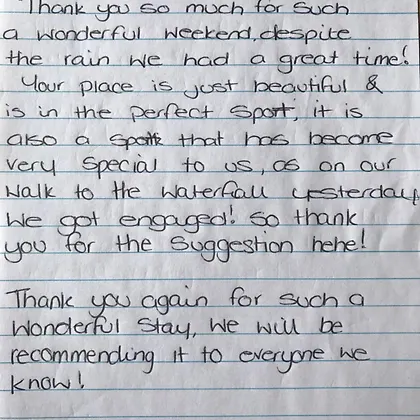 Thank you so much for such
a wonderful weekend, despite
the rain we had a great time!
Your place is just beautiful &
is in the perfect spot, it is
also a spott that has become
very special to us, as on our
walk to the waterfall yesterday,
we got engaged! So thank
you for the suggestion hehe!
Thank you again for such a
wonderful stay, we will be
recommending it to everyone we
know!